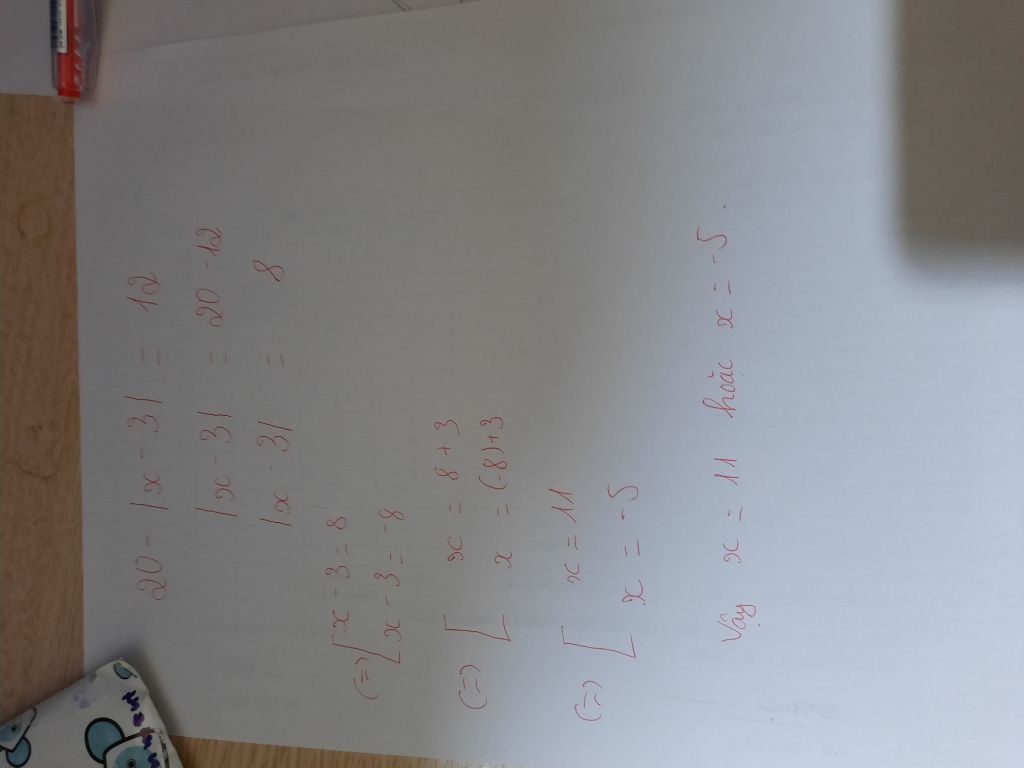 20 - |x - 3| = 12
|x - 3| = 20 - 12
|x - 3| = 8
(=) [ x - 3 = 8
x - 3 = -8
(=) [ x = 8 + 3
x = (-8) + 3
(=) [ x = 11
x = -5
Vậy x = 11 hoặc x = -5.